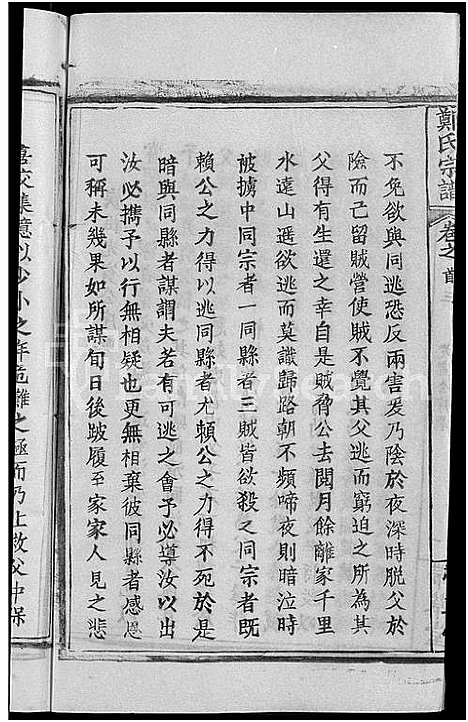 鄭氏宗譜
卷之首
不免欲與同逃恐反兩害爰乃陰於夜深時脫父於
險而己留賊營使賊不覺其父逃而窮迫之所為其
父得有生還之幸自是賊脅公去閱月餘離家千里
水遠山遙欲逃而莫識歸路朝不頻啼夜則暗泣時
被擄中同宗者一同縣者三賊皆欲殺之同宗者既
賴公之力得以逃同縣者尤賴公之力得不死於是
暗與同縣者謀謂夫若有可逃之會予必導汝以出
汝必攜予以行無相疑也更無相棄彼同縣者感恩
可稱未幾果如所謀旬日後跛履至家家人見之悲
以少小之年危難之極而乃上救父中保